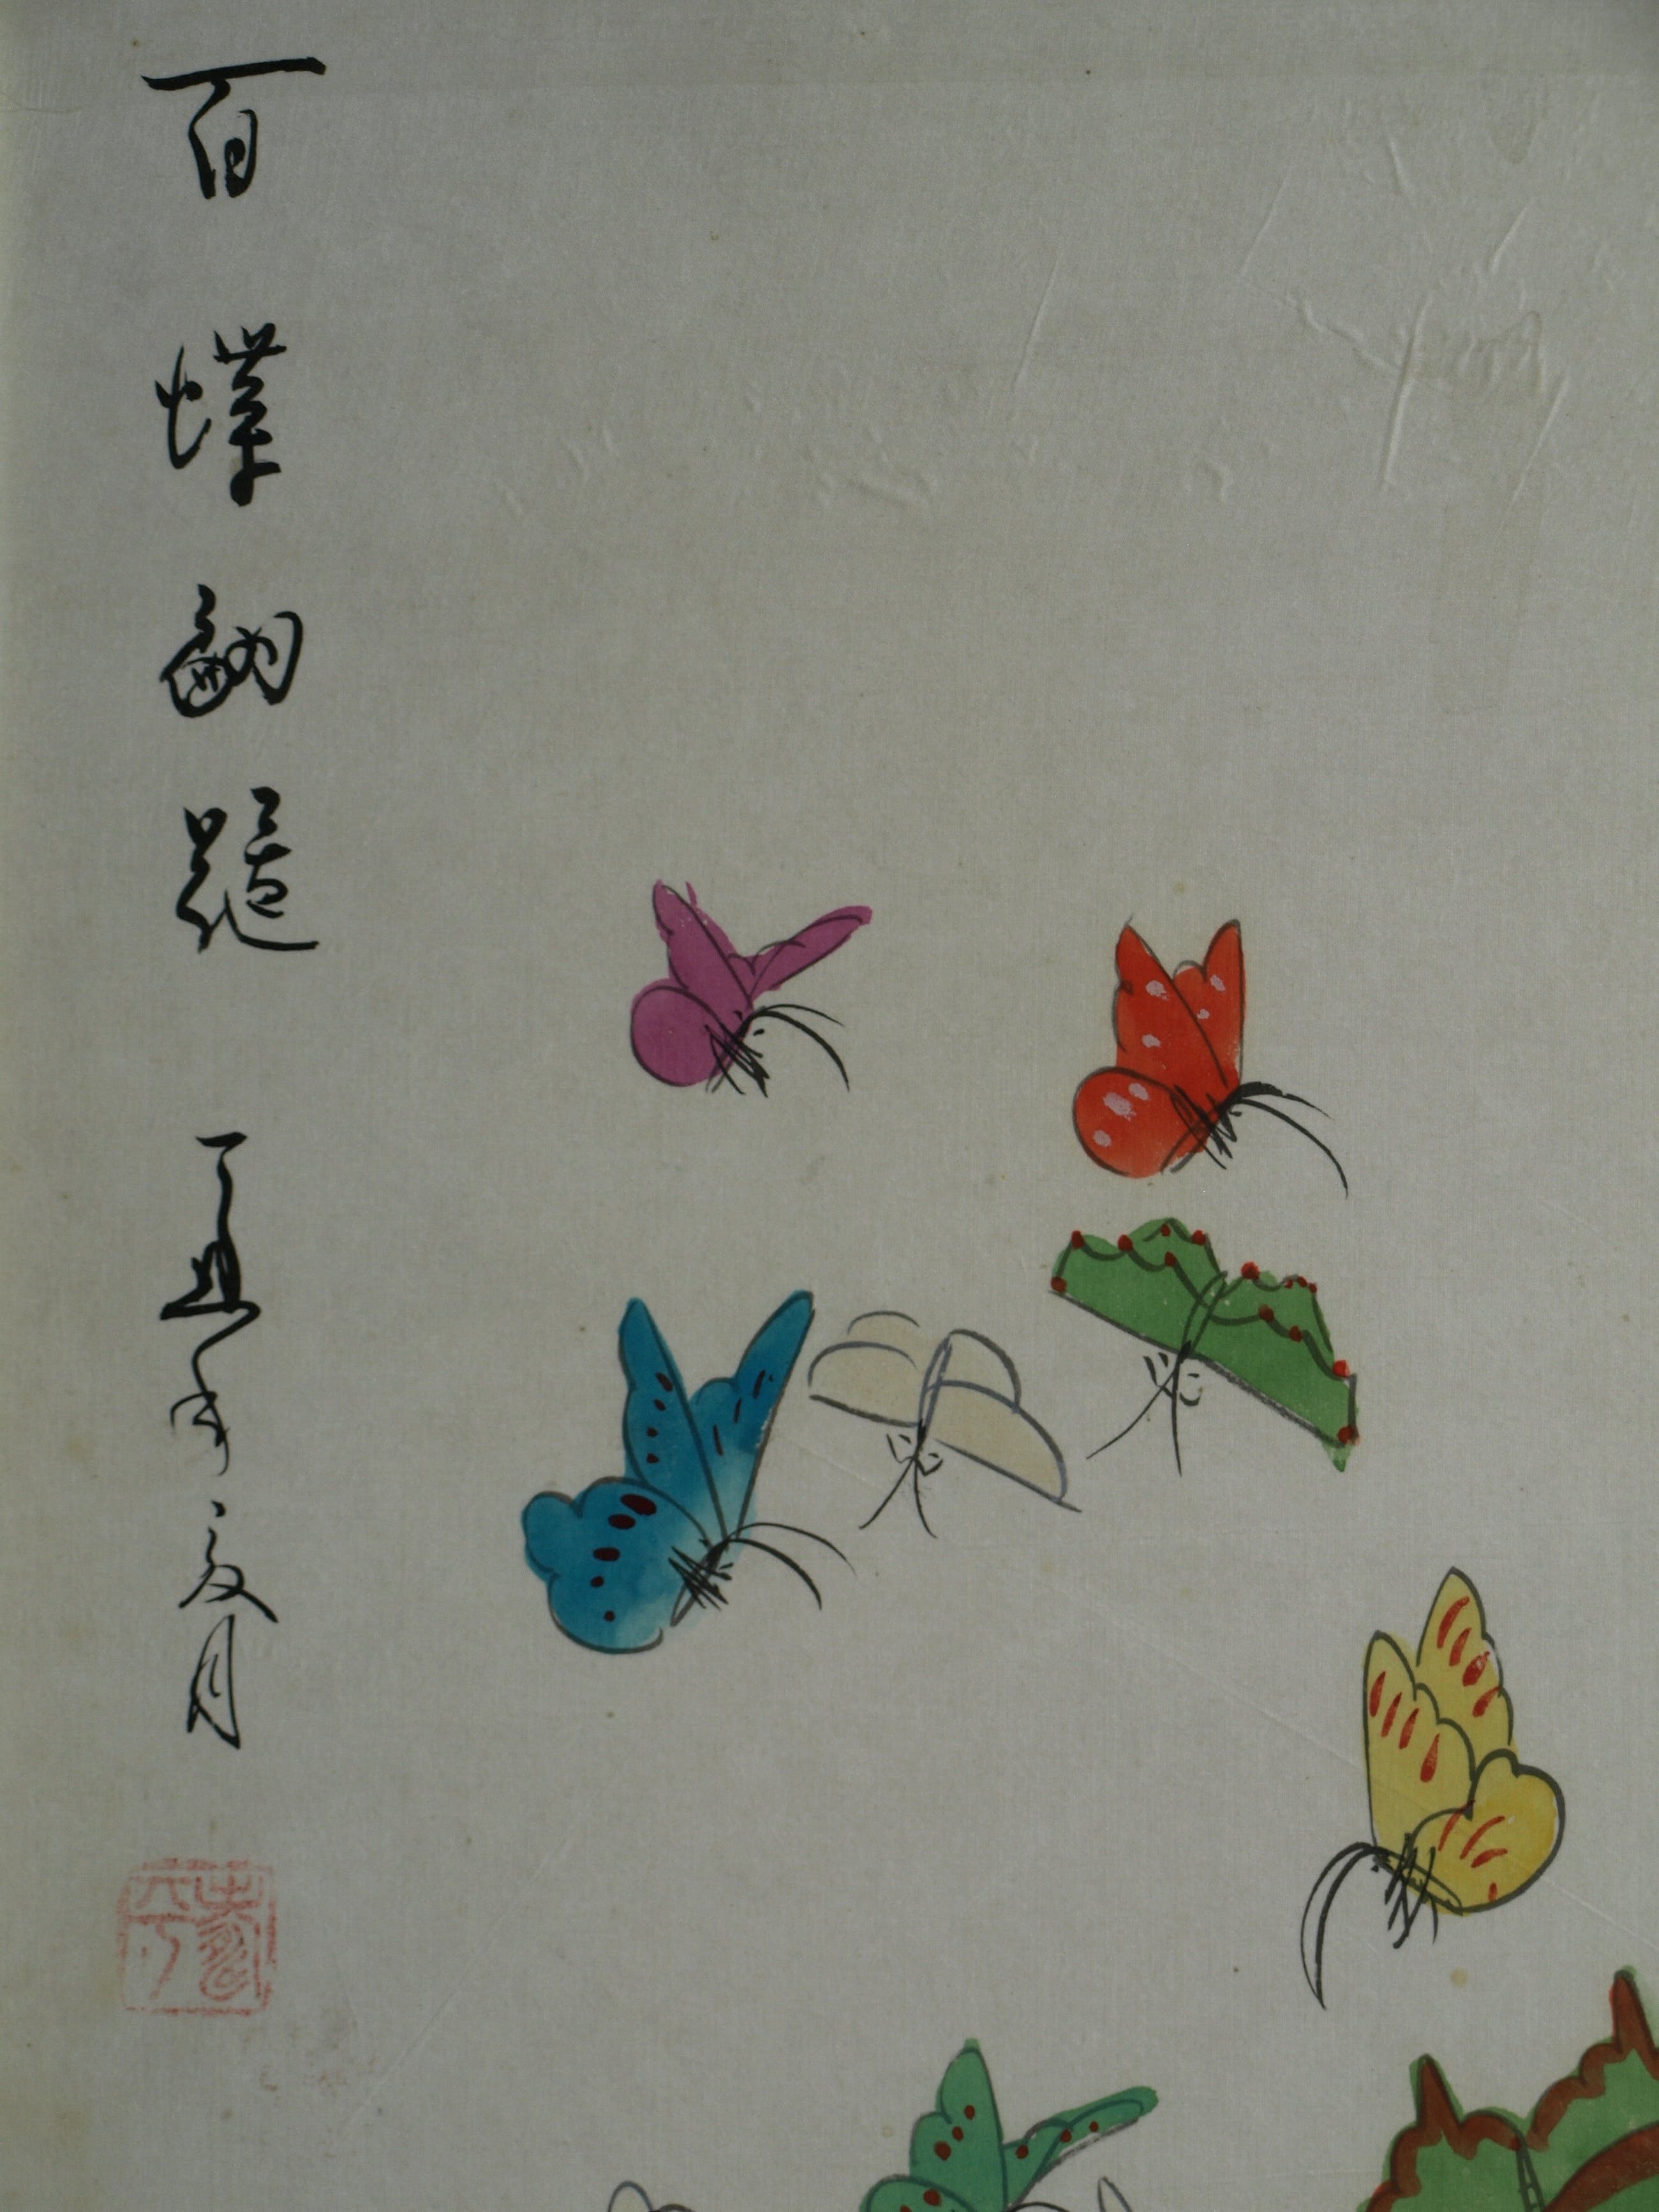 百蝶翩躚 丁丑年夏月